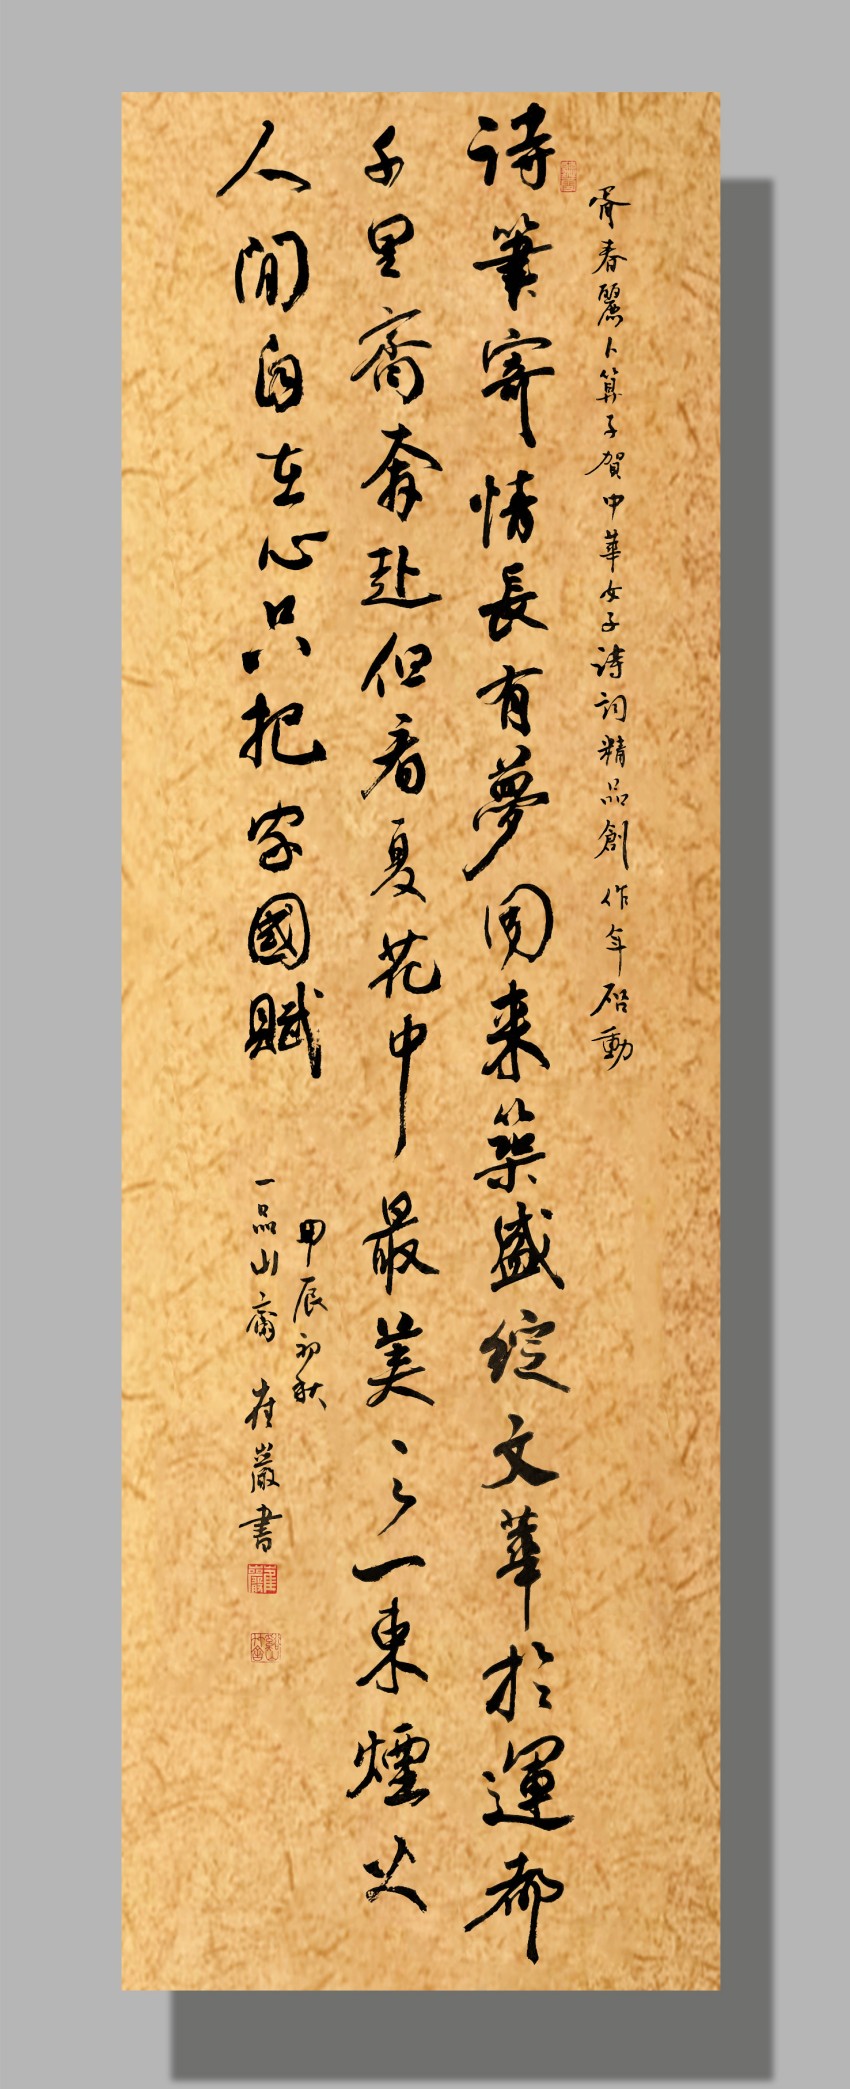 胥春麗卜算子賀中華女子詩詞精品創作年啓動
詩筆寄情長有夢回来築盛綻文華於運都
千里齊奔赴但看夏花中最美之一束煙火
人間自在心只把家國賦
甲辰初秋
一品山齋崔巖書
崔巖